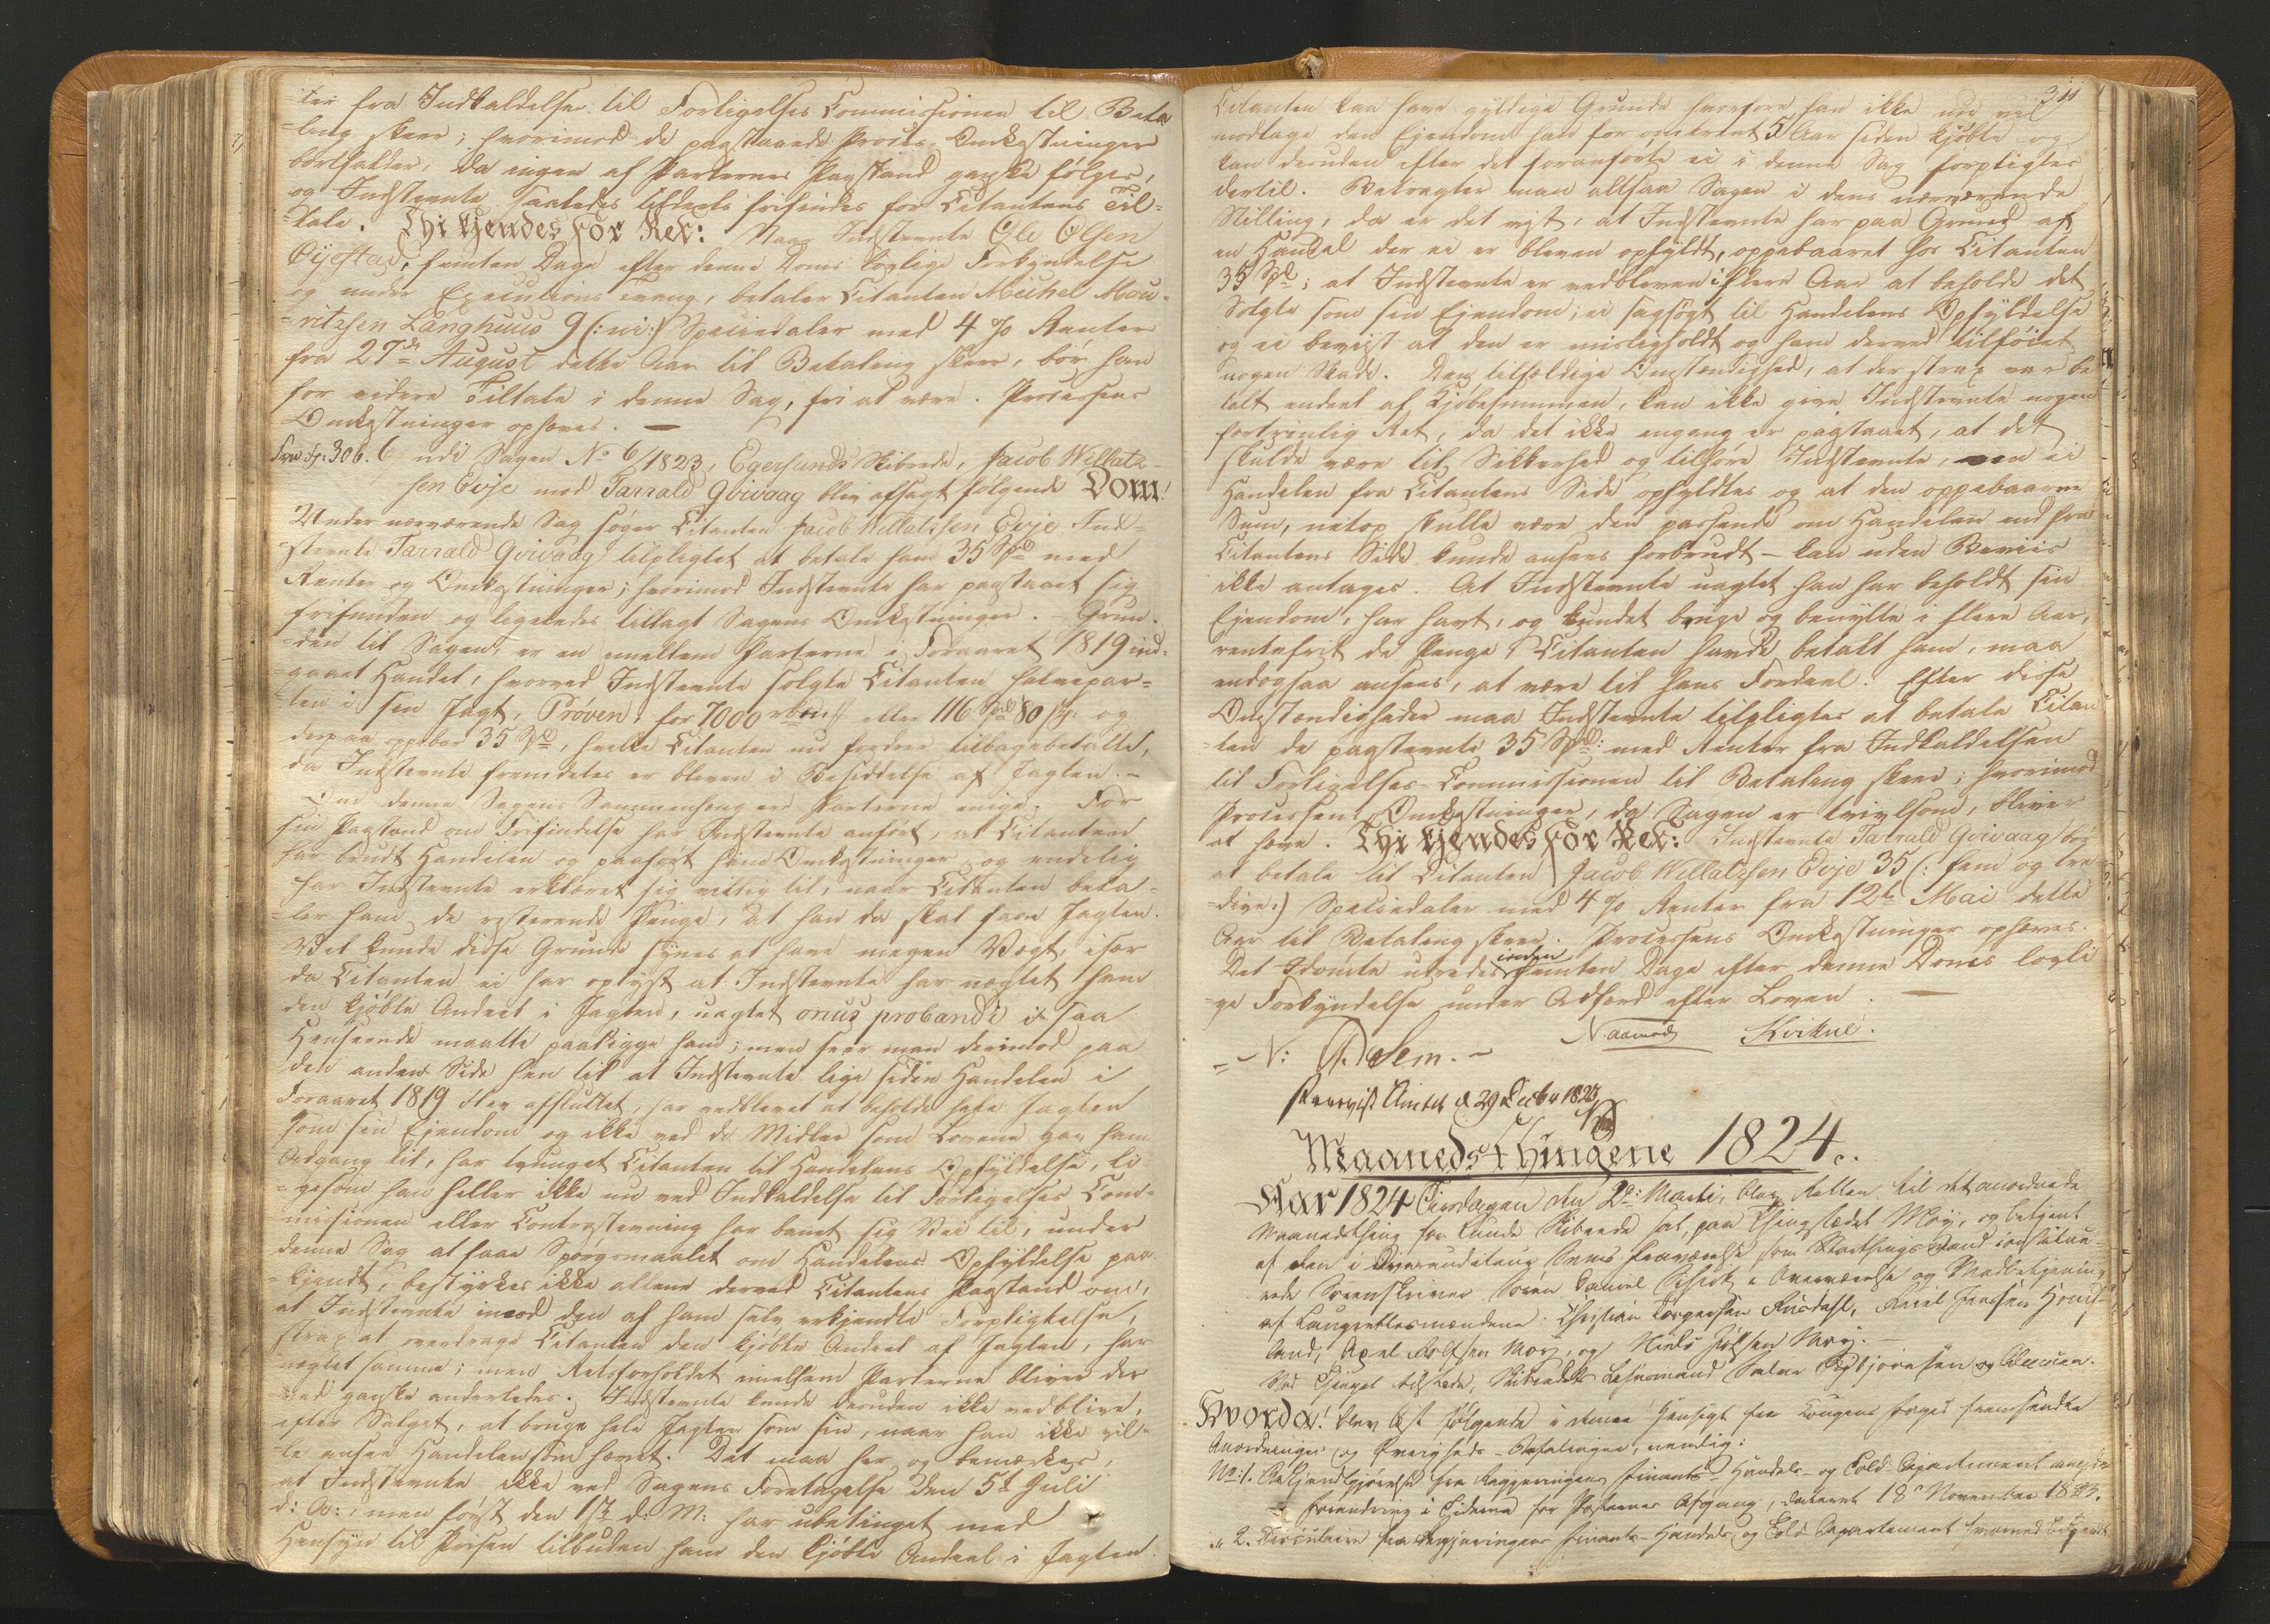 ter fra Indkaldelse til Forligelses Commissionen til Beta
ling skeer; hvorimod de paastaaede Proces-Omkostninger
bortfalder, da ingen af Parternes Paastand ganske følges,
og Indstevnte saaledes tildeels frifindes for Citantens Til-
tale. Thi kjendes for Ret: Naar Indstevnte Ole Olsen
Øijestad, femten Dage efter denne Doms lovlige Forkyndelse
og under Executions Tvang, betaler Citanten Michel Mau-
ritzsen Langhuus 9 (: ni :) Speciedaler med 4 % Renter
fra 27de August dette Aar til Betaling skeer, bør han
for videre Tiltale i denne Sag, fri at være. Processens
Omkostninger ophæves. —
Fra F: 306. 6 udi Sagen No 6/1823, Egersunds Skibrede, Jacob Willatz-
sen Evje mod Tarrald Gvivaag blev afsagt følgende Dom!
Under nærværende Sag søger Citanten Jacob Willatzsen Evje Ind-
stevnte Tarrald Gvivaag tilpligtet at betale ham 35 Spd med
Renter og Omkostninger; hvorimod Indstevnte har paastaaet sig
frifunden og ligeledes tillagt Sagens Omkostninger. - Grun-
den til Sagen, er en imellem Parterne i Foraaret 1819 ind-
gaaet Handel, hvorved Indstevnte solgte Citanten Halvepar-
ten i sin Jagt, Prøven, for 7000 eller 116 Spd 80 s: og
derpaa oppebar 35 Spd, hvilke Citanten nu fordrer tilbagebetalte,
da Indstevnte fremdeles er bleven i Besiddelse af Jagten. -
Om denne Sagens Sammenhæng ere Parterne enige. For
sin Paastand om Frifindelse har Indstevnte anført, at Citanten
har brudt Handelen og paaført ham Omkostninger og endelig
har Indstevnte erklæret sig villig til, naar Citanten beta-
ler ham de resterende Penge, at han da skal faae Jagten.
Vel kunde disse Grunde synes at have megen Vægt, især
da Citanten ei har oplyst at Indstevnte har nægtet ham
den kjøbte Andeel i Jagten, uagtet onus probandi i saa
Henseende maatte paaligge ham; men seer man derimod paa
den anden Side hen til at Indstevnte lige siden Handelen i
Foraaret 1819 blev afsluttet, har vedblevet at beholde hele Jagten
som sin Ejendom og ikke ved de Midler som Lovene gav ham
Adgang til, har tvunget Citanten til Handelens Opfyldelse, li-
gesom han heller ikke nu ved Indkaldelse til Forligelses Com-
missionen eller Contrastevning har banet sig Vei til, under
denne Sag at faae Spørgsmaalet om Handelens Opfyldelse paa-
kjendt, bestyrkes ikke allene derved Citantens Paastand om,
at Indstevnte imod den af ham selv erkjendte Forpligtelse,
strax at overdrage Citanten den kjøbte Andeel af Jagten, har
nægtet samme; men Retsforholdet imellem Parterne bliver der
ved ganske anderledes. Indstevnte kunde desuden ikke vedblive,
efter Salget, at bruge hele Jagten som sin, naar han ikke vil-
le ansee Handelen som hævet. Det maa her og bemærkes,
at Indstevnte ikke ved Sagens Foretagelse den 5te Juli
d: A:, men først den 17de d: M: har ubetinget med
Hensyn til Prisen tilbuden ham den kjøbte Andeel i Jagten.
311
Citanten kan have gyldige Grunde hvorfore han ikke nu vil
modtage den Ejendom han for omtrent 5 Aar siden kjøbte og
kan desuden efter det foranførte ei i denne Sag forpligtes
dertil. Betragter man altsaa Sagen i dens nærværende
Stilling, da er det vist, at Indstevnte har paa Grund af
en Handel der ei er bleven opfyldt, oppebaaret hos Citanten
35 Spd; at Indstevnte er vedbleven i flere Aar at beholde det
Solgte som sin Ejendom; ei sagsøgt til Handelens Opfyldelse
og ei bevist at den er misligholdt og ham derved tilføiet
nogen Skade. Den tilfældige Omstændighed, at der strax var be
talt endeel af Kjøbesummen, kan ikke give Indstevnte nogen
fortrinlig Ret, da det ikke engang er paastaaet, at det
skulde være til Sikkerhed og tilhøre Indstevnte, om ei
Handelen fra Citantens Side opfyldtes og at den oppebaarne
Sum, netop skulle være den passende om Handelen end fra
Citantens Side kunde ansees forbrudt - kan uden Beviis
ikke antages. At Indstevnte uagtet han har beholdt sin
Ejendom, har havt, og kundet bruge og benytte i flere Aar,
rentefrit de Penge Citanten havde betalt ham, maa
endogsaa ansees, at være til hans Fordeel. Efter disse
Omstændigheder maa Indstevnte tilpligtes at betale Citan
ten de paastevnte 35 Spd: med Renter fra Indkaldelsen
til Forligelses-Commissionen til Betaling skeer; hvorimod
Processens Omkostninger, da Sagen er tvivlsom, bliver
at hæve. Thi kjendes for Ret: Indstevnte Tarrald Gvivaag bør
at betale til Citanten Jacob Willatzsen Evje 35 (: fem og tre
dive :) Speciedaler med 4 % Renter fra 12te Mai dette
Aar til Betaling skeer. Processens Omkostninger ophæves.
Det Idømte udredes inden femten Dage efter denne Doms lovli
ge Forkyndelse under Adfærd efter Loven. —
Naamod Kvikne.
Idem. -
Forevist Amtet d 29 Decbr 1823
Maaneds Thingene 1824.
Aar 1824 Tirsdagen den 2d: Marti, blev Retten til det anordnede
Maanedsthing for Lunde Skibrede sat, paa Thingstædet Moy, og betjent
af den i Sorenskriverens Fraværelse som Storthingsmand constitue-
rede Sorenskriver Søren Daniel Schiøtz i Overværelse og Medbetjening
af Laugrettesmændene: Christian Torgersen Rusdahl, Axel Rolfsen Moy, og Niels Moy. -
Ved Thinget tilstede, Skibredets Lehnsmand Asbjørnsen og Almuen.
Hvorda! blev læst følgende i denne Henseende fra Kongens Foged fremsendte
Anordninger og Øvrigheds-Befalinger, nemlig:
No: 1. Bekjendtgjørelse fra Regjeringens Finants- Handels- og Told-Departement angaaende
Forandring i Tiderne for Posternes Afgang, dateret 18de November 1823.
" 2. Circulaire fra Regjeringens Finants- Handels og Told Departement hvorved bekjendt